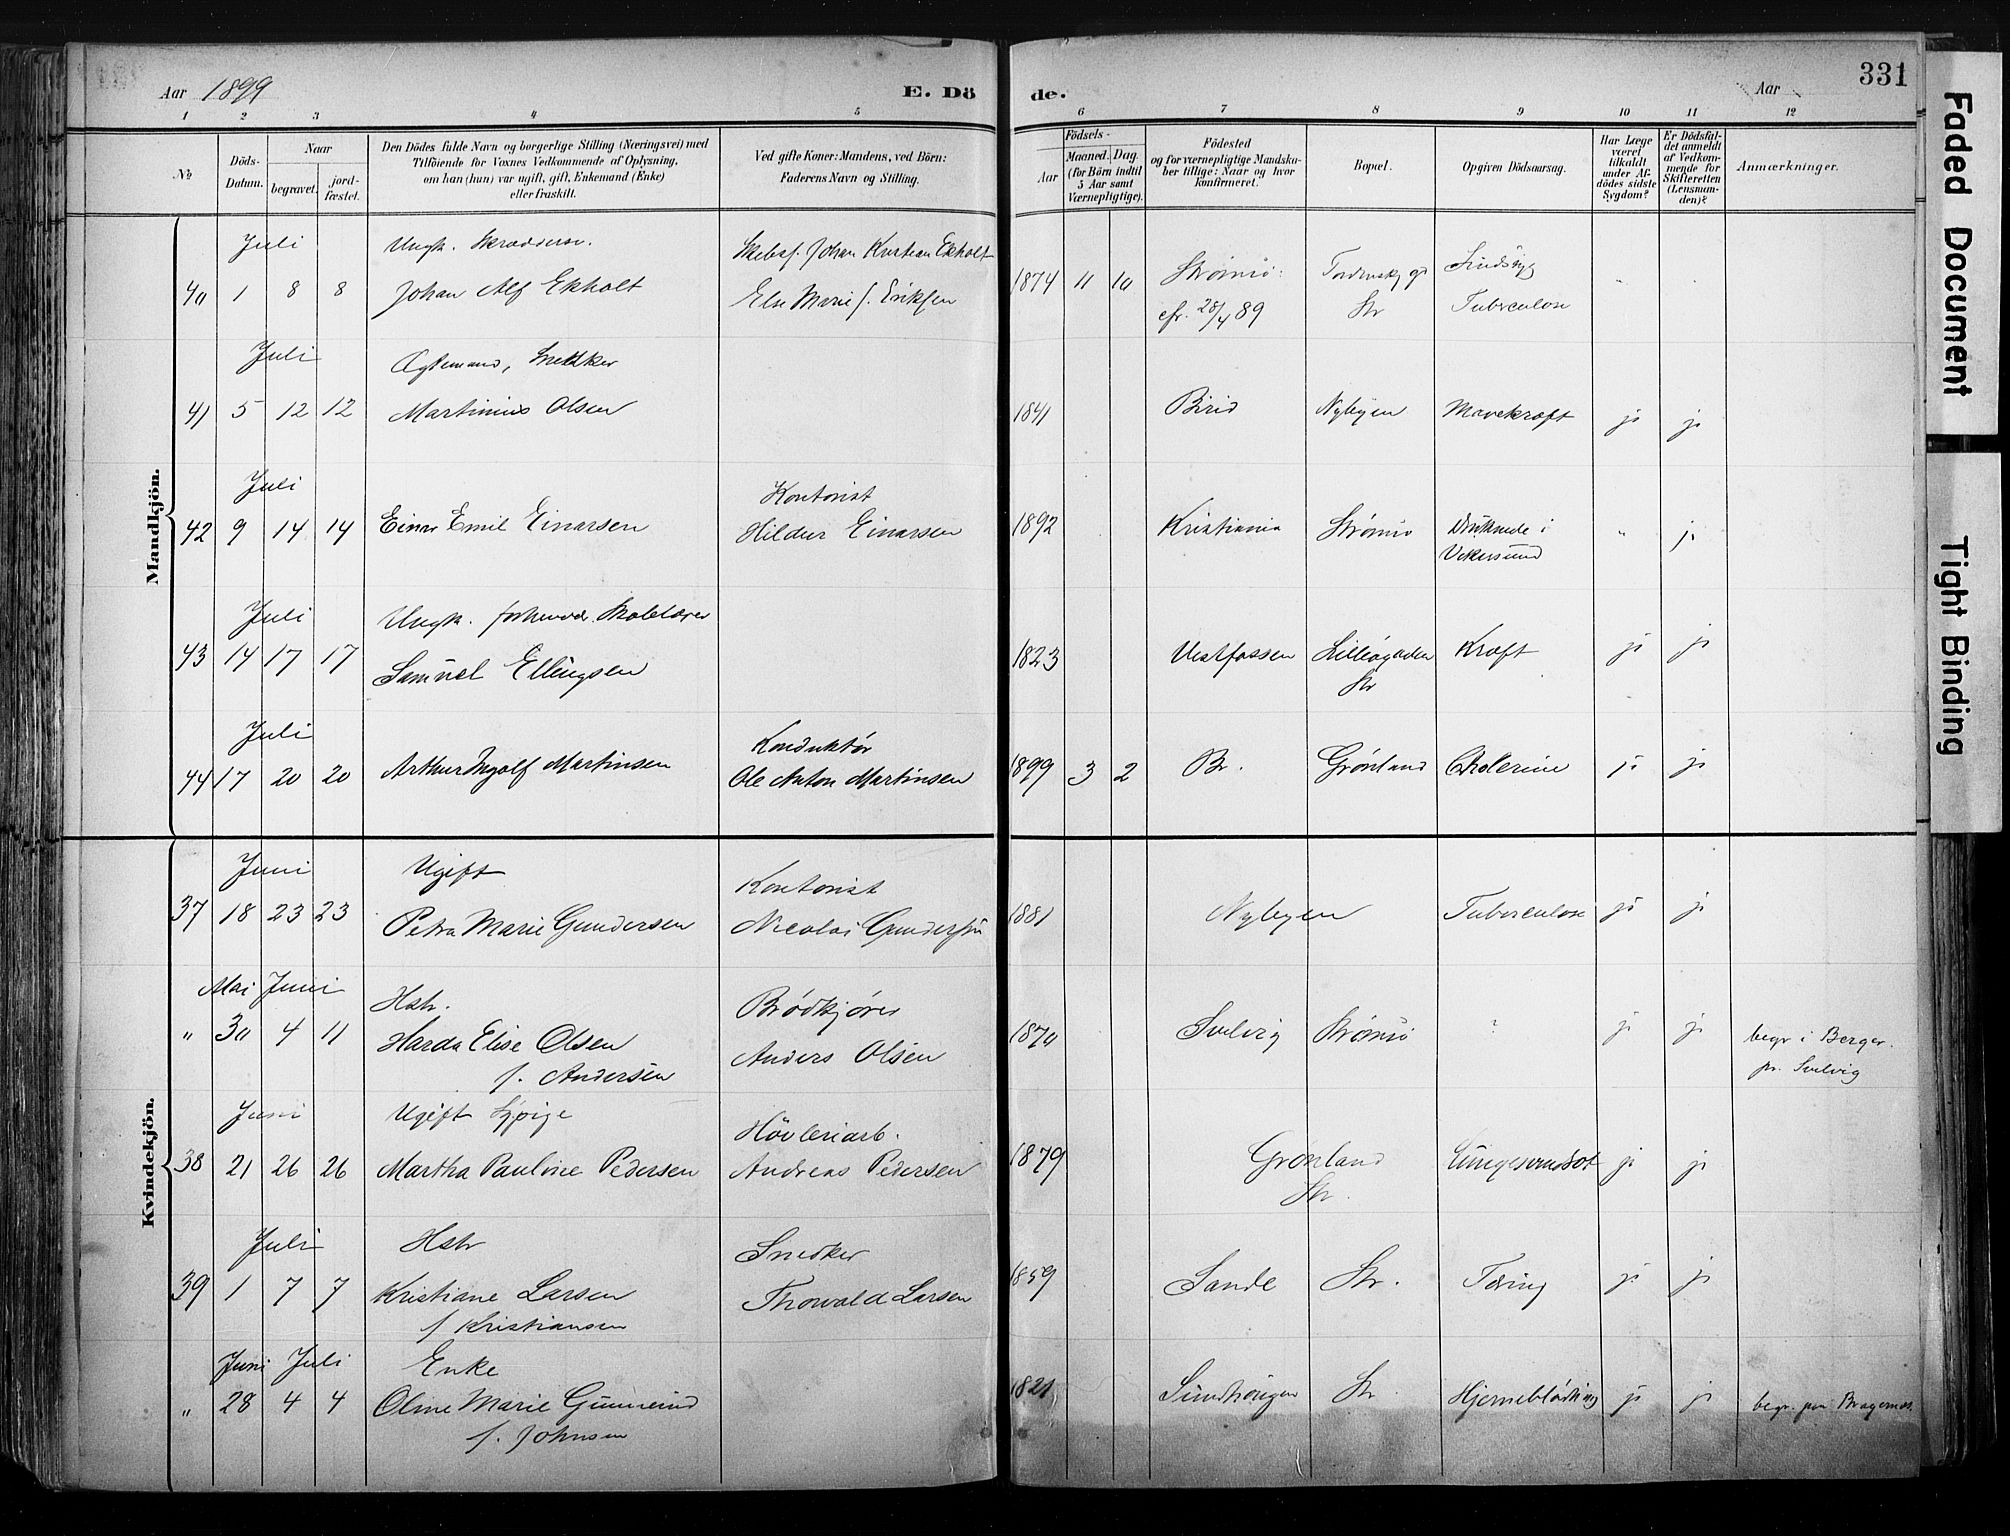 Aar 1899 E. Döde. Aar 331
1 2 3 4 5 6 7 8 9 10 11 12
№
Döds-Datum.
Naar
begravet. jordfæstet.
Den Dödes fulde Navn og borgerlige Stilling (Næringsvei) med
Tilföiende för Voxnes Vedkommende af Oplysning,
om han (hun) var ugift, gift, Enkemand (Enke)
eller fraskilt.
Ved gifte Koner: Mandens, ved Börn:
Faderens Navn og Stilling.
Födsels-
Aar Maaned. Dag.
(for Börn indtil
5 Aar samt
Værnepligtige).
Födested
og for værnepligtige Mandskaber tillige: Naar og hvor
konfirmeret.
Bopæl.
Opgiven Dödsaarsag.
Har Læge
været
tilkaldt
under Afdödes sidste
Sygdom?
Er Dödsfaldet anmeldt
af Vedkommende for
Skifteretten
(Lensmanden)?
Anmærkninger.
Mandkjön.
Juli Ungk. Skrædersv. Skibsf. Johan Kristian Ekholt
40 1 8 8 Johan Alf Ekholt Else Marie f. Eriksen 1874 11 10 Strømsö: Tordenskj gd Sindsyg
cfr. 28/4 89 Str Tuberculose
Juli Ægtemand, Snekker
41 5 12 12 Martinius Olsen 1841 Birid Nybyen Mavekræft ja ja
Juli Kontorist
42 9 14 14 Einar Emil Einarsen Hildur Einarsen 1892 Kristiania Strømsö Druknede i " ja
Vikersund
Juli Ungk. forhenvær. Skolelærer
43 14 17 17 Samuel Ellingsen 1823 Vestfossen Lilleøgaden Kræft ja ja
Str
Juli Konduktør
44 17 20 20 Arthur Ingolf Martinsen Ole Anton Martinsen 1899 3 2 Br. Grønland Cholerine ja ja
Kvindekjön.
Juni Ugift Kontorist
37 18 23 23 Petra Marie Gundersen Nicolai Gundersen 1881 Nybyen Tuberculose ja ja
Mai Juni Hstr. Brødkjører
" 30 4 11 Harda Elise Olsen Anders Olsen 1870 Svelvig Strømsö ? ja ja begr i Berger
f. Andersen pr. Svelvig
Juni Ugift Sypige Høvleriarb.
38 21 26 26 Martha Pauline Pedersen Andreas Pedersen 1879 Grønland ja ja
Str.
Juli Hstr Snedker
39 1 7 7 Kristiane Larsen Thorvald Larsen 1859 Sande Str. Tæring ja ja
f Kristiansen
Juni Juli Enke
" 28 4 4 Oline Marie 1821 Str Hjerneblødning ja ja begr. paa Bragernes.
f. Johnsen
Faded Document
Tight Binding